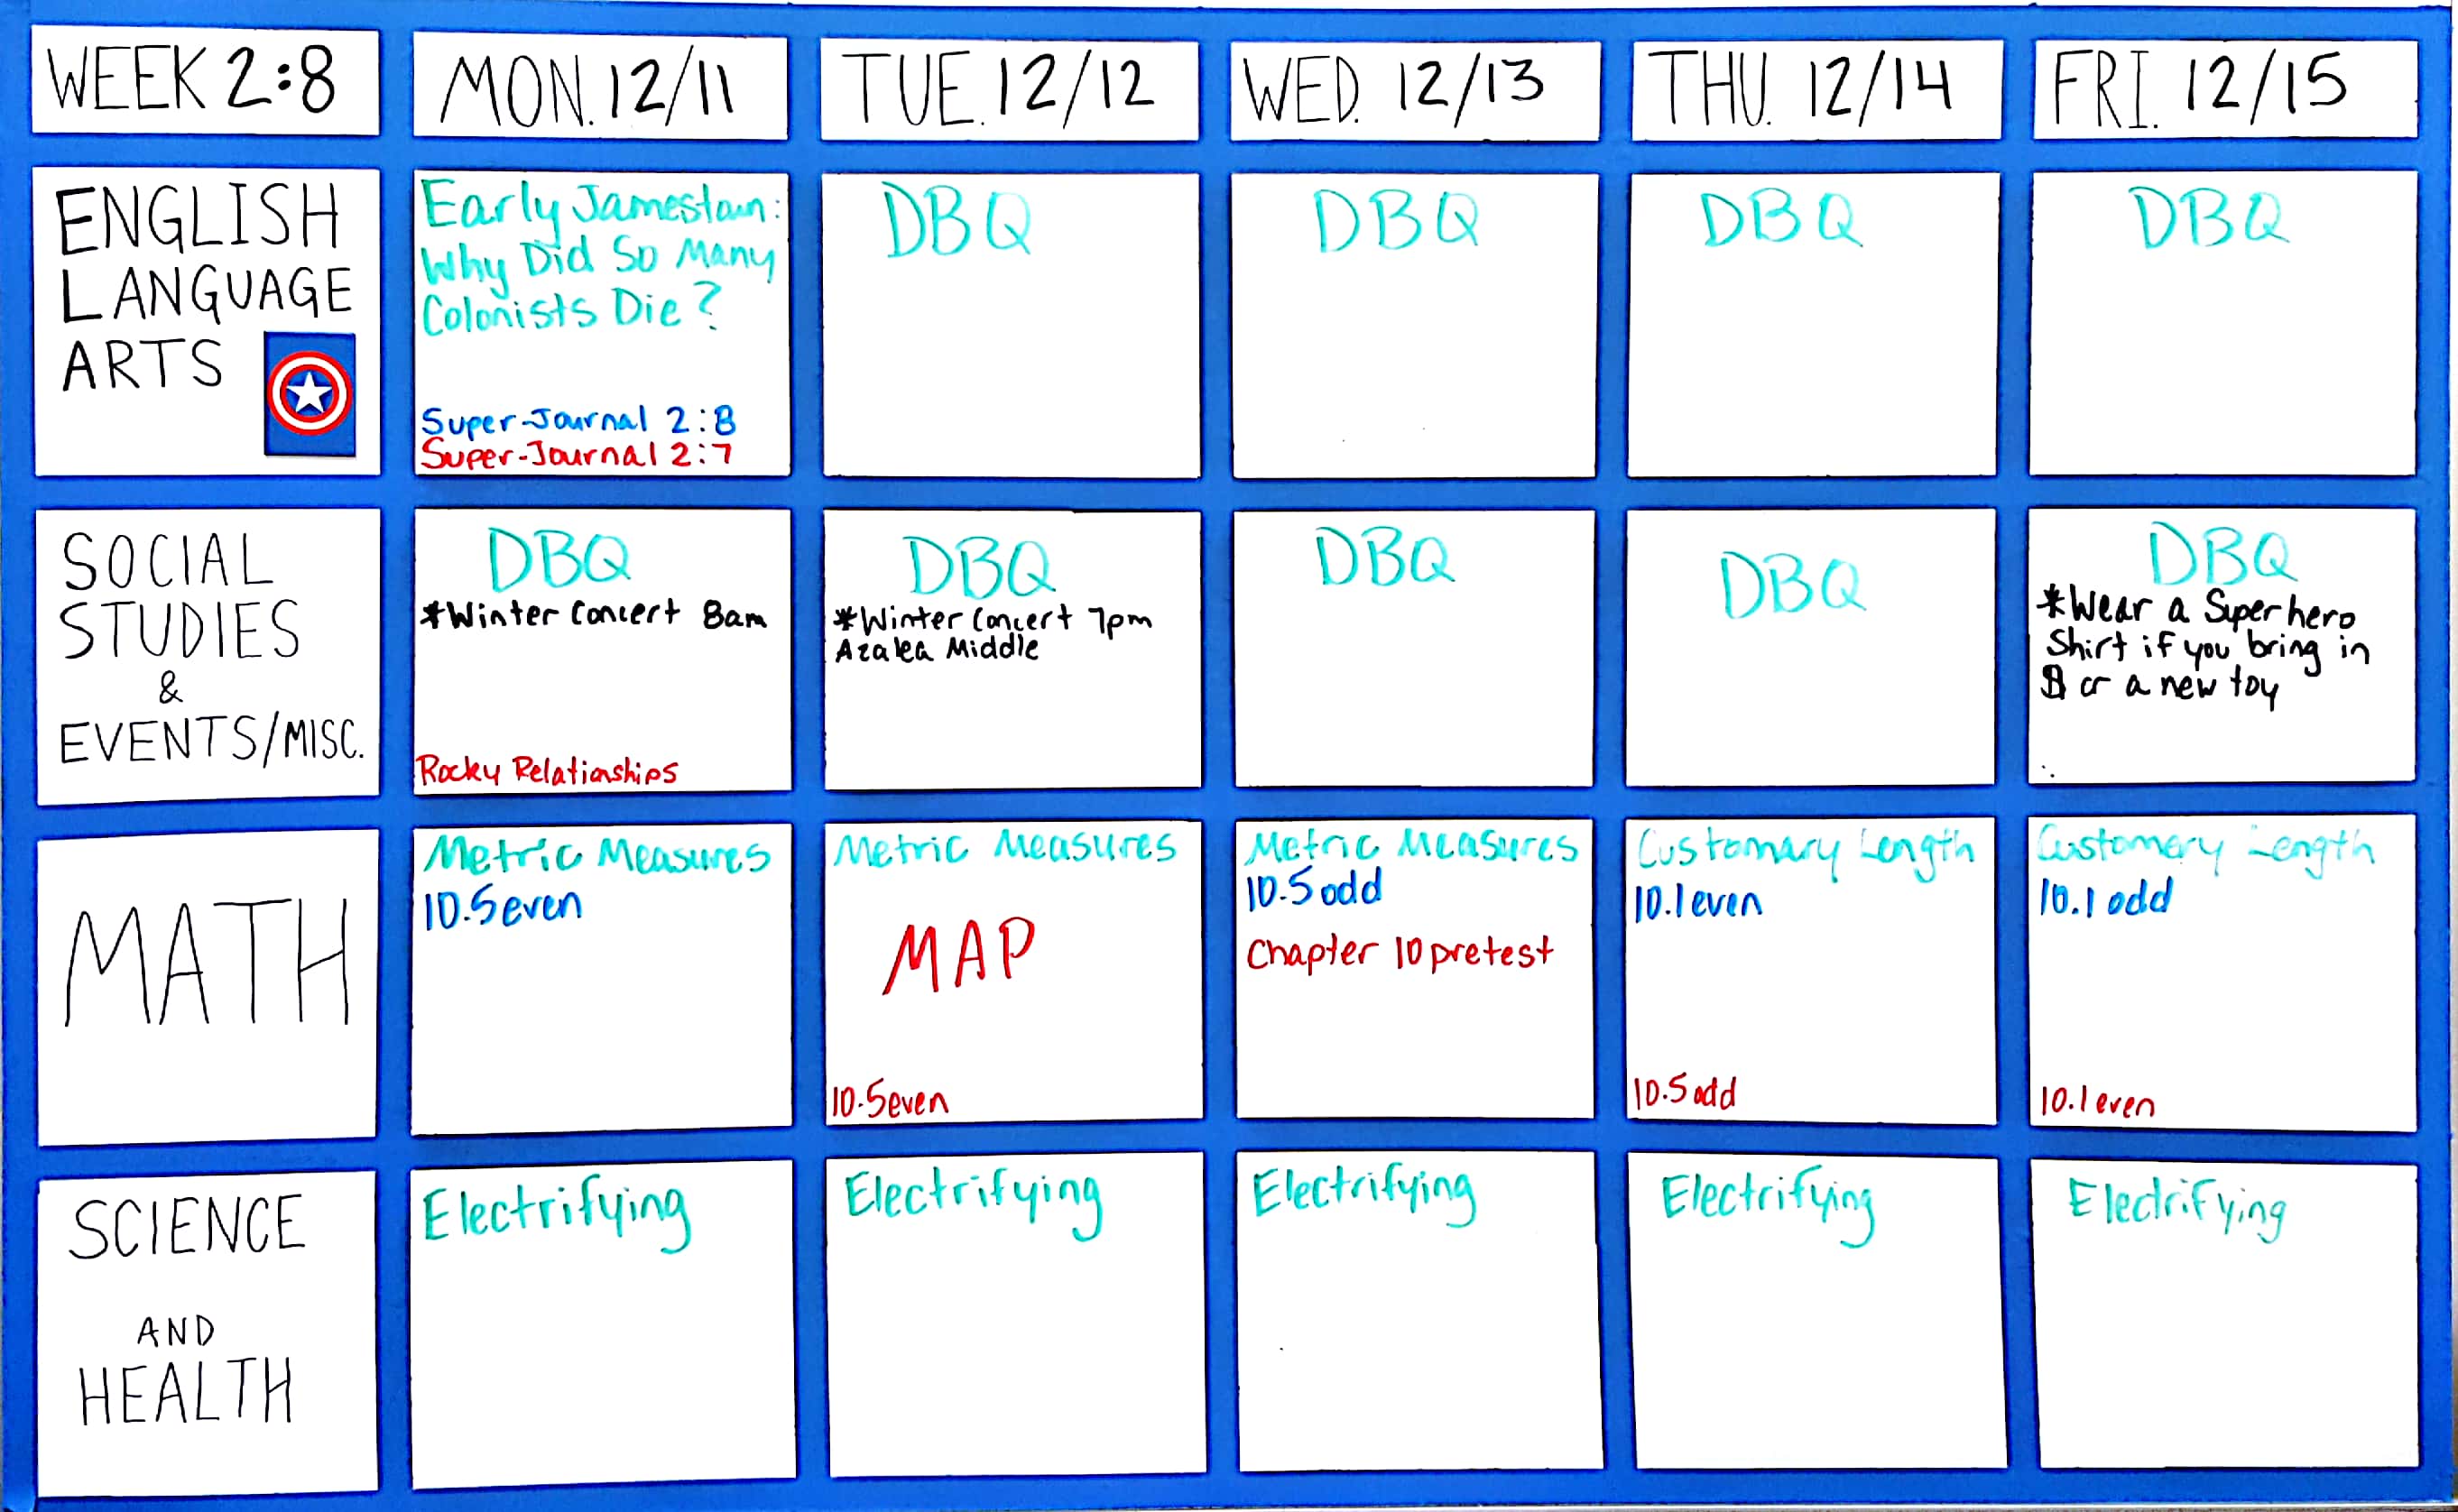 WEEK 2:8
MON. 12/11
TUE. 12/12
WED. 12/13
THU. 12/14
FRI. 12/15
ENGLISH
LANGUAGE
ARTS
Early Jamestown:
Why Did So Many
Colonists Die?
Super-Journal 2:8
Super-Journal 2:7
DBQ
DBQ
DBQ
DBQ
SOCIAL
STUDIES
&
EVENTS/MISC.
DBQ
*Winter Concert 8am
Rocky Relationships
DBQ
*Winter Concert 7pm
Azalea Middle
DBQ
DBQ
DBQ
*Wear a Superhero
Shirt if you bring in
$ or a new toy
MATH
Metric Measures
10.5 even
Metric Measures
MAP
10.5 even
Metric Measures
10.5 odd
Chapter 10 pretest
Customary Length
10.1 even
10.5 odd
Customary Length
10.1 odd
10.1 even
SCIENCE
AND
HEALTH
Electrifying
Electrifying
Electrifying
Electrifying
Electrifying